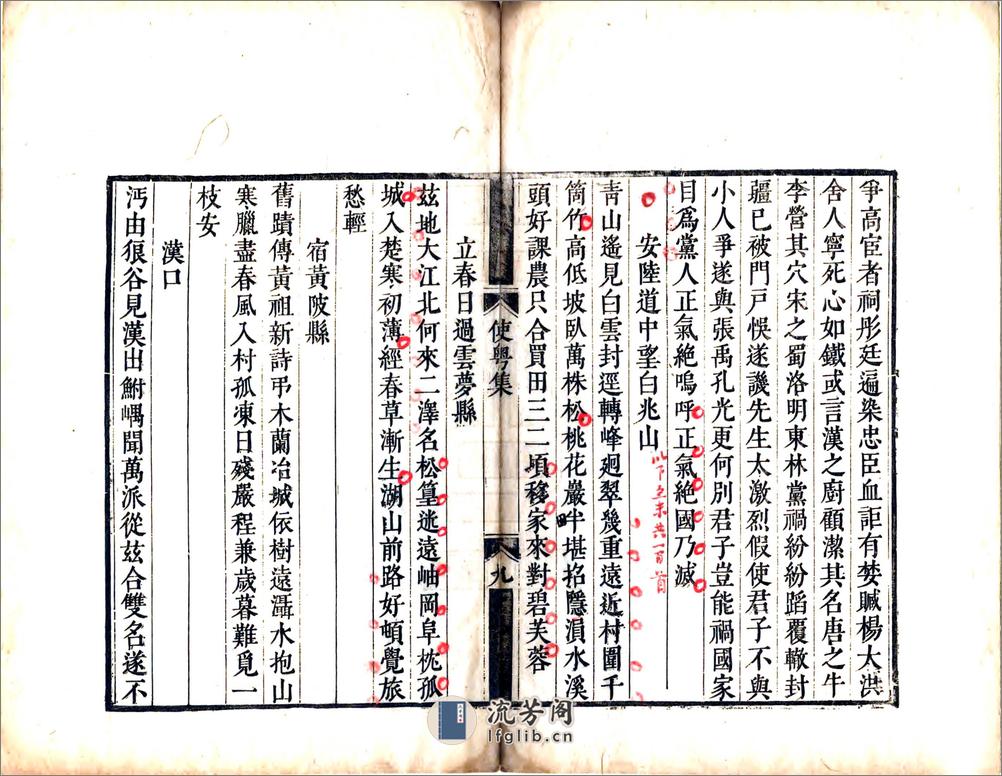 爭高宦者祠彤廷遍染忠臣血詎有婪贓楊大洪
舍人寧死心如鐵或言漢之廚顧潔其名唐之牛
李營其穴宋之蜀洛明東林黨禍紛紛蹈覆轍封
疆已被門戸悞遂譏先生太激烈假使君子不與
小人爭遂與張禹孔光更何別君子豈能禍國家
目爲黨人正氣絶嗚呼正氣絶國乃滅
安陸道中望白兆山
以下五未共一百首
靑山遙見白雲封逕轉峰廻翠幾重遠近村圍千
箇竹高低坡臥萬株松桃花巖半堪招隱溳水溪
頭好課農只合買田三二頃移家來對碧芙蓉
使粵集
九
立春日過雲夢縣
茲地大江北何來二澤名松篁迷遠岫岡阜枕孤
城入楚寒初薄經春草漸生湖山前路好頓覺旅
愁輕
宿黃陂縣
舊蹟傳黃祖新詩弔木蘭冶城依樹遠灄水抱山
寒臘盡春風入村孤凍日殘嚴程兼歲暮難覓一
枝安
漢口
沔由狠谷見漢出鮒嵎聞萬派從茲合雙名遂不
流芳阁
lfglib.cn